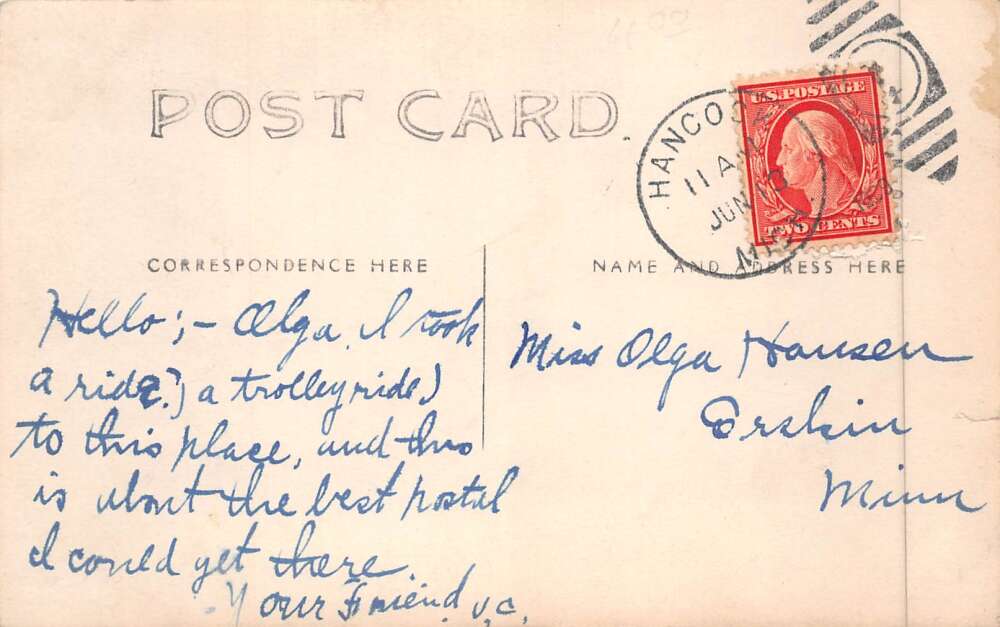 POST CARD.
HANCOCK
11 AM
JUN 13
MICH.
U.S. POSTAGE
TWO CENTS
CORRESPONDENCE HERE
NAME AND ADDRESS HERE
Hello;- Olga, I took
a ride?) a trolleyride)
to this place, and this
is about the best postal
I could get there.
Your Friend V.C.
Miss Olga Hansen
Erskin
Minn